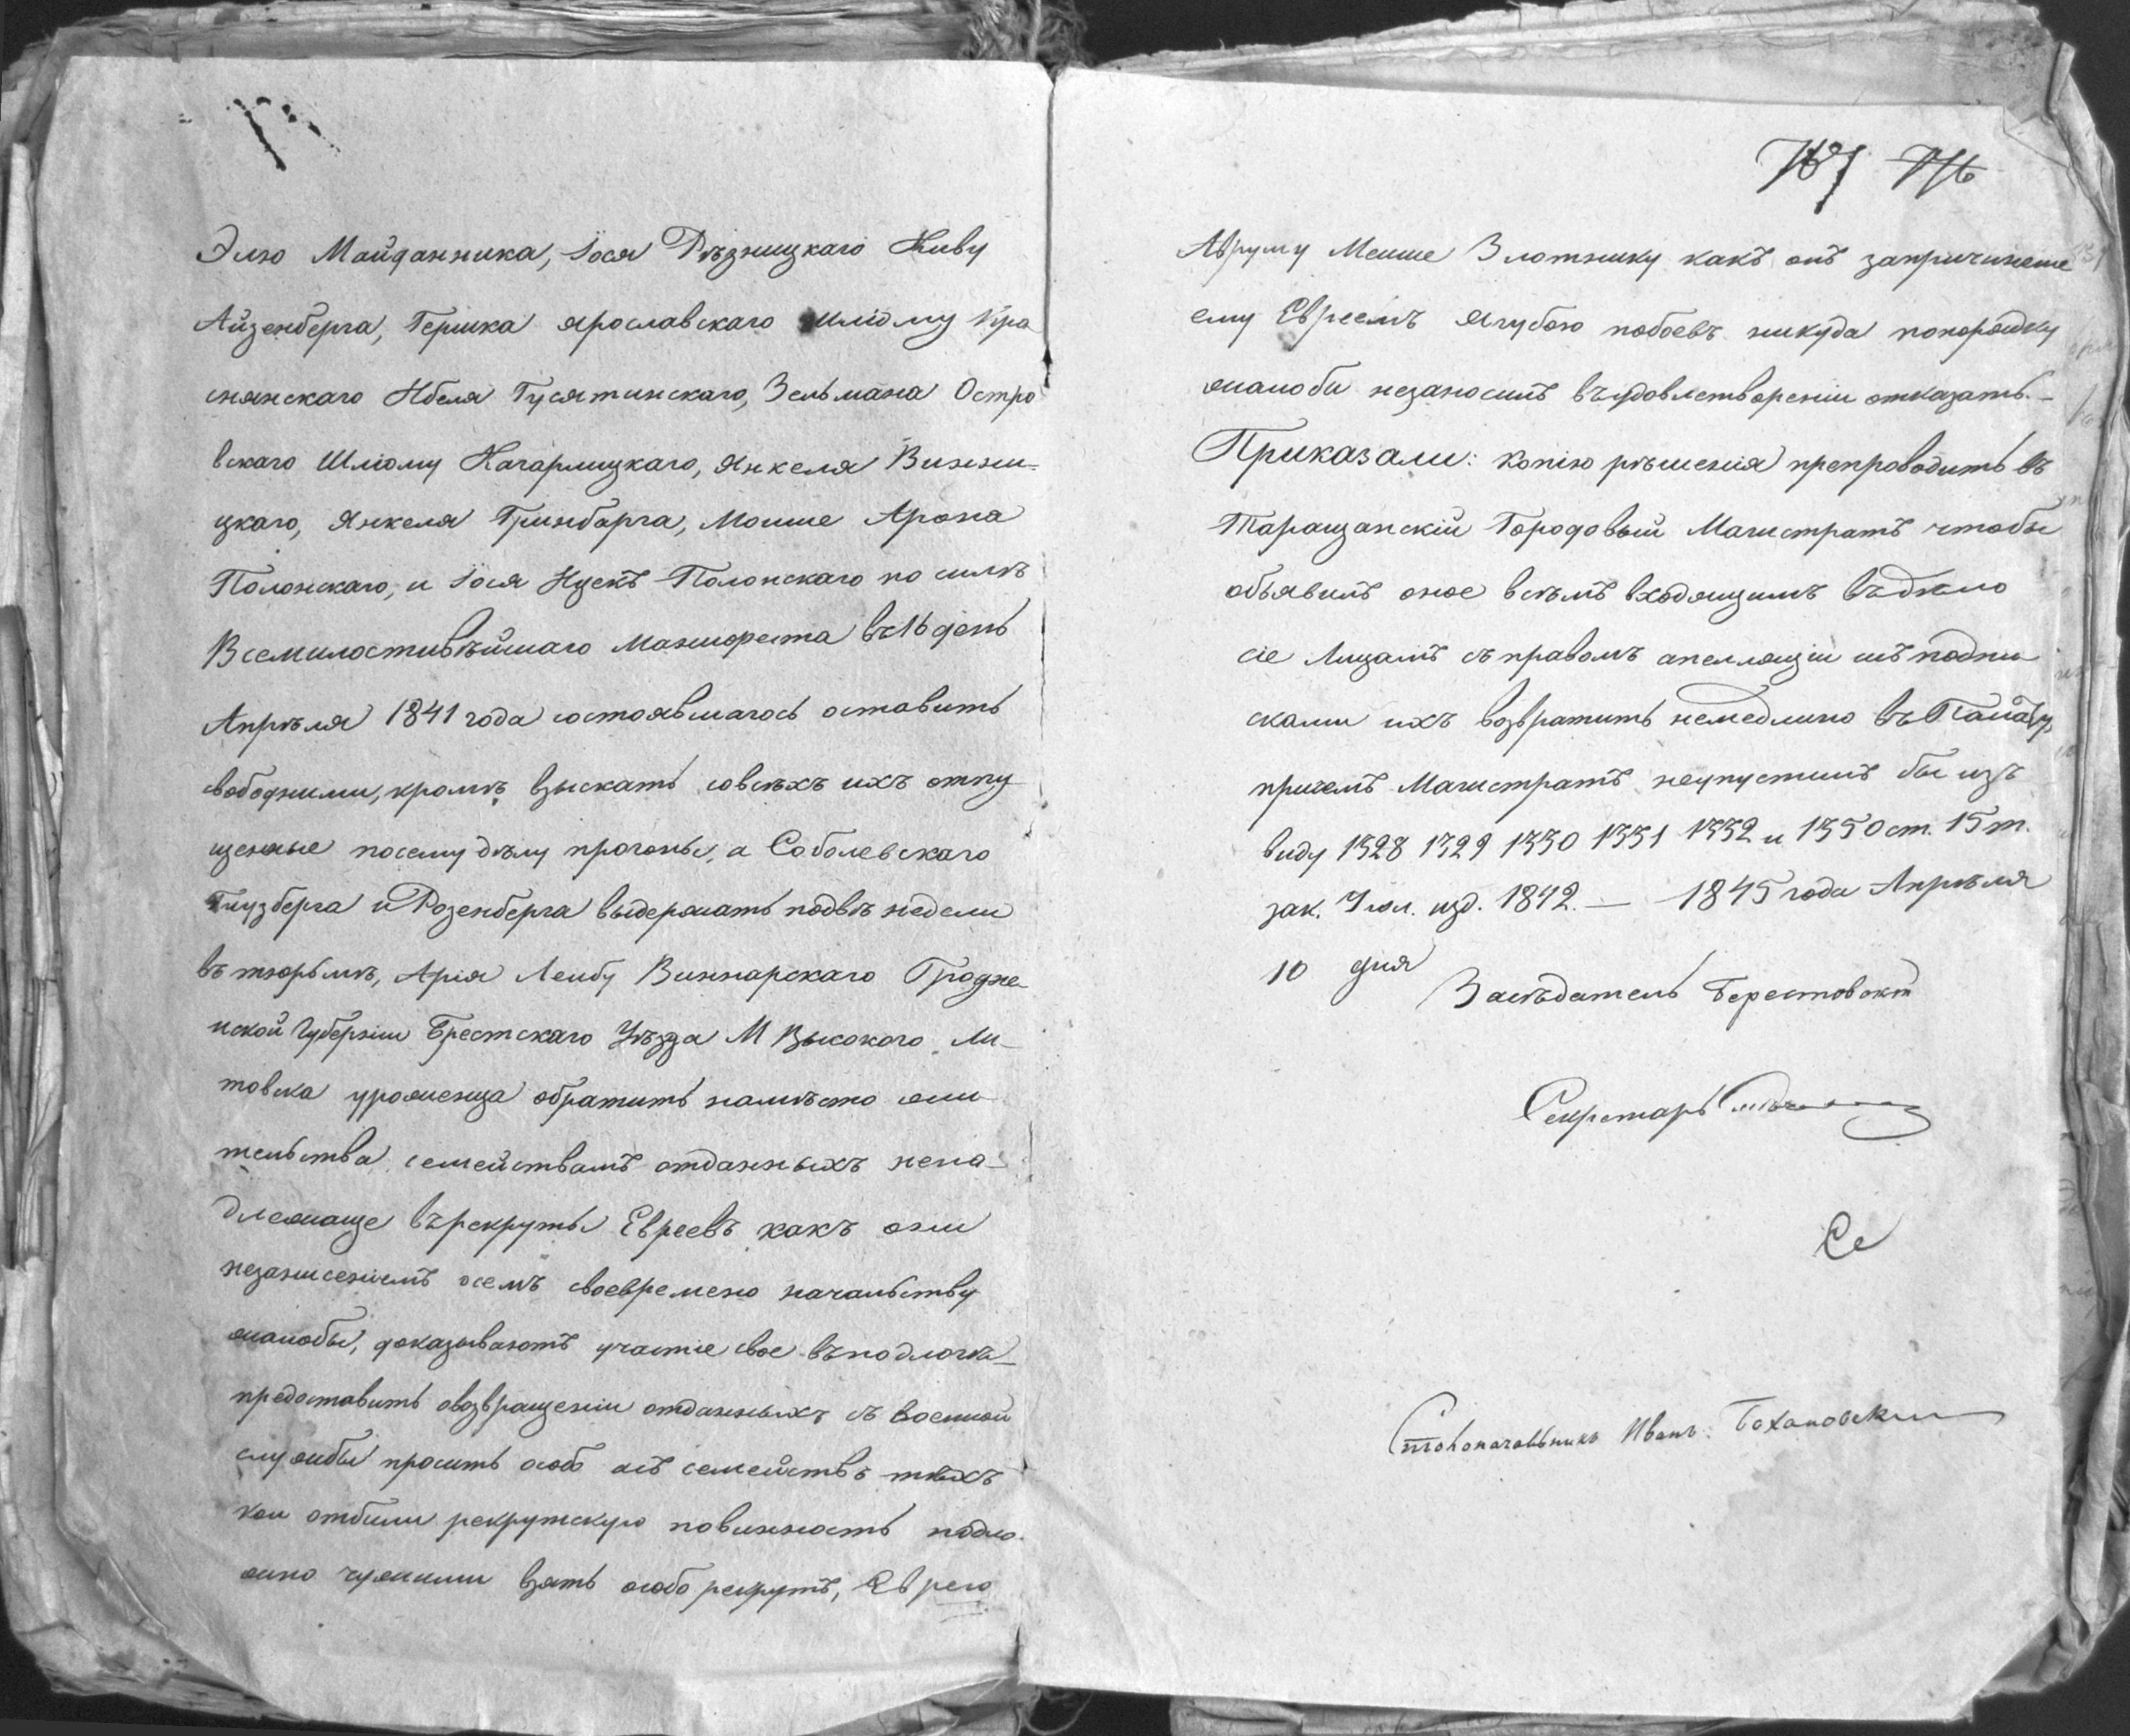 Элю Майданника, Іося Рѣзницкаго Киву
Айзенберга, Гершка Ярославскаго Шліому Кра
снянскаго Абеля Гусятинскаго, Зельмана Остро
вскаго Шліому Кагарлицкаго, Янкеля Винни-
цкаго, Янкеля Гринбарга, Мошие Арона
Полонскаго, и Іося Ицекъ Полонскаго по силѣ
Всемилостивѣйшаго Манифеста въ 16 день
Апрѣля 1841 года состоявшагось оставить
свободними, кромѣ взыскать совсѣхъ ихъ отпу
щенные посему дѣлу прогоны, а Соболевскаго
Гинзберга и Розенберга выдержать подвѣ недели
въ тюрьмѣ, Арія Лейбу Виннарскаго Гродне
нской Губерніи Брестскаго Уѣзда М Высокого Ли-
товска уроженца обратить намѣсто жи-
тельства, семействамъ отданныхъ нена-
длежаще върекруты Евреевъ какъ они
незанисеніемъ осемъ своевремено начальству
жалобы, доказываютъ участіе свое въподлогѣ
предоставить овозвращеніи отданныхъ съ военной
службы просить особо асъ семействъ тѣхъ
кои отбыли рекрутскую повинность подло-
жно чужими взять особо рекрутъ, Еврею
Авруму Мошие Злотнику какъ онъ запричиненіе
ему Евреемъ Ягубою побоевъ никуда попорядку
жалоби незаносилъ въудовлетвореніи отказать. –
Приказали: Копію рѣшенія препроводить въ
Таращанскій Городовый Магистратъ чтобы
объявилъ оное всѣмъ входящимъ въдѣло
сіе Лицамъ съ правомъ апелляціи исъ подпи
сками ихъ возвратить немедлино въ Палату
причемъ Магистратъ неупустилъ бы изъ
виду 1328 1329 1330 1331 1332 и 1350 ст. 15 т.
зак. Угол. изд. 1842. — 1845 года Апрѣля
10 дня
Засѣдатель Берестовскій
Секретарь
Се
Столоначальникъ Иванъ Бохановскій